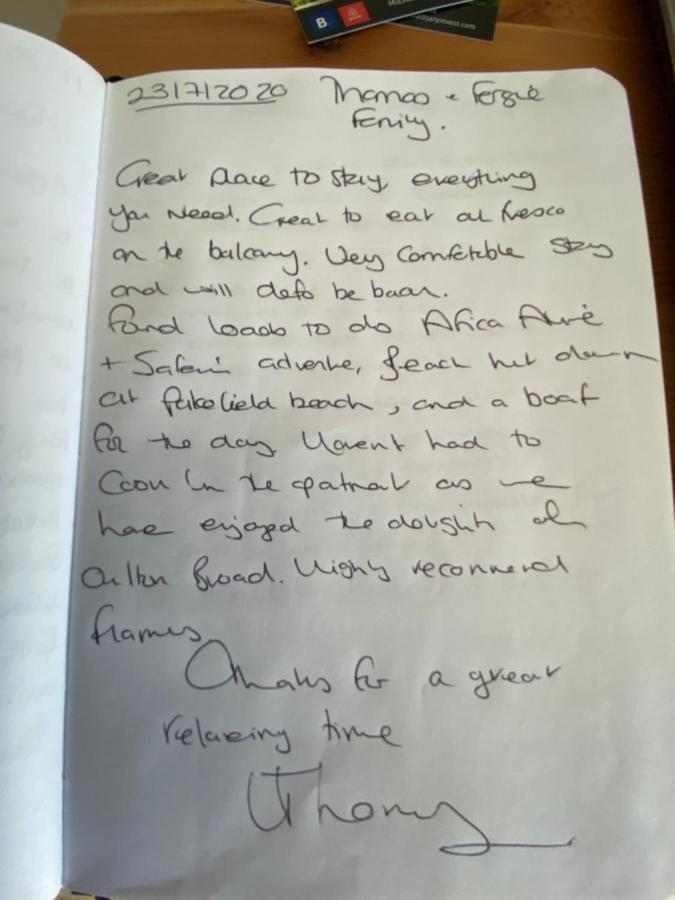 B.
@jaryinvest.com
23/7/2020 Thomas + Fergie
Family.
Great place to stay, everything
you need. Great to eat al fresco
on the balcony. Very comfetable stay
and will defo be back.
Found loads to do Africa Alive
+ Safari adventure, beach hut down
at pakefield beach, and a boat
for the day. Havent had to
cook in the apatmat as we
have enjoyed the delights of
Oulton Broad. Highly recommend
flames.
Thanks for a great
relaxing time
Thomas